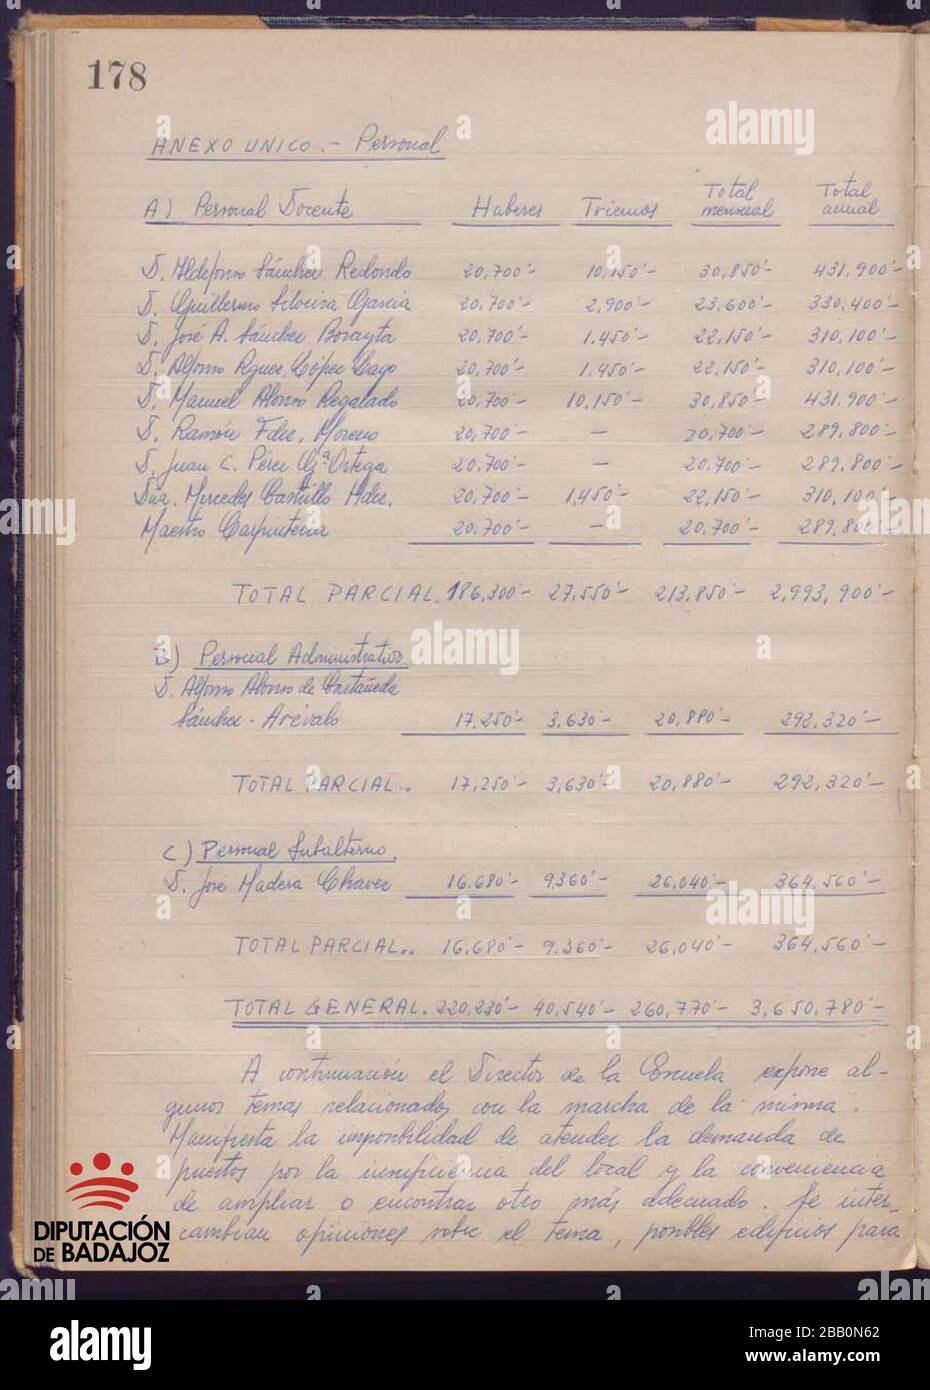 178
ANEXO UNICO.- Personal
A) Personal Docente Haberes Trienios Total mensual Total anual
D. Ildefonso Sánchez Redondo 20,700'- 10,150'- 30,850'- 431,900'-
D. Guillermo Silveira García 20,700'- 2,900'- 23,600'- 330,400'-
D. José A. Sánchez Borayta 20,700'- 1,450'- 22,150'- 310,100'-
D. Alfonso López Lago 20,700'- 1,450'- 22,150'- 310,100'-
D. Manuel Alonso Regalado 20,700'- 10,150'- 30,850'- 431,900'-
D. Ramón Fdez. Moreno 20,700'- — 20,700'- 289,800'-
D. Juan C. Pérez Gª Ortega 20,700'- — 20,700'- 289,800'-
Dña. Mercedes Castillo Hdez. 20,700'- 1,450'- 22,150'- 310,100'-
Maestro Carpintería 20.700'- — 20,700'- 289,800'-
TOTAL PARCIAL. 186,300'- 27,550'- 213,850'- 2,993,900'-
B) Personal Administrativo.
D. Alfonso Alonso de Castañeda
Sánchez-Arévalo 17,250'- 3,630'- 20,880'- 292,320'-
TOTAL PARCIAL.. 17,250'- 3,630'- 20,880'- 292,320'-
C) Personal Subalterno.
D. José Madera Chavez 16.680'- 9,360'- 26,040'- 364,560'-
TOTAL PARCIAL.. 16,680'- 9,360'- 26,040'- 364,560'-
TOTAL GENERAL. 220,230'- 40,540'- 260,770'- 3,650,780'-
A continuación el Director de la Escuela expone al-
gunos temas relacionados con la marcha de la misma.
Manifiesta la imposibilidad de atender la demanda de
puestos por la insuficiencia del local y la conveniencia
de ampliar o encontrar otro más adecuado. Se inter-
cambian opiniones sobre el tema, posibles edificios para
DIPUTACIÓN
DE BADAJOZ
alamy
alamy
alamy
alamy
Image ID: 2BB0N62
www.alamy.com